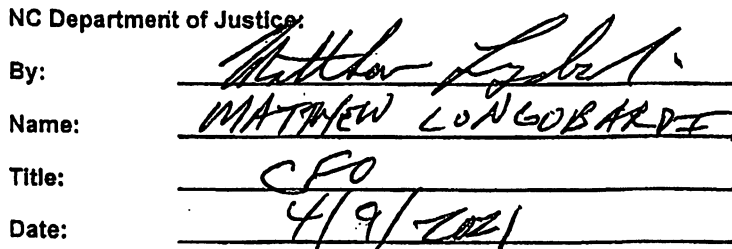 NC Department of Justice:
By: Matthew Longobardi
Name: MATTHEW LONGOBARDI
Title: CFO
Date: 4/9/2021